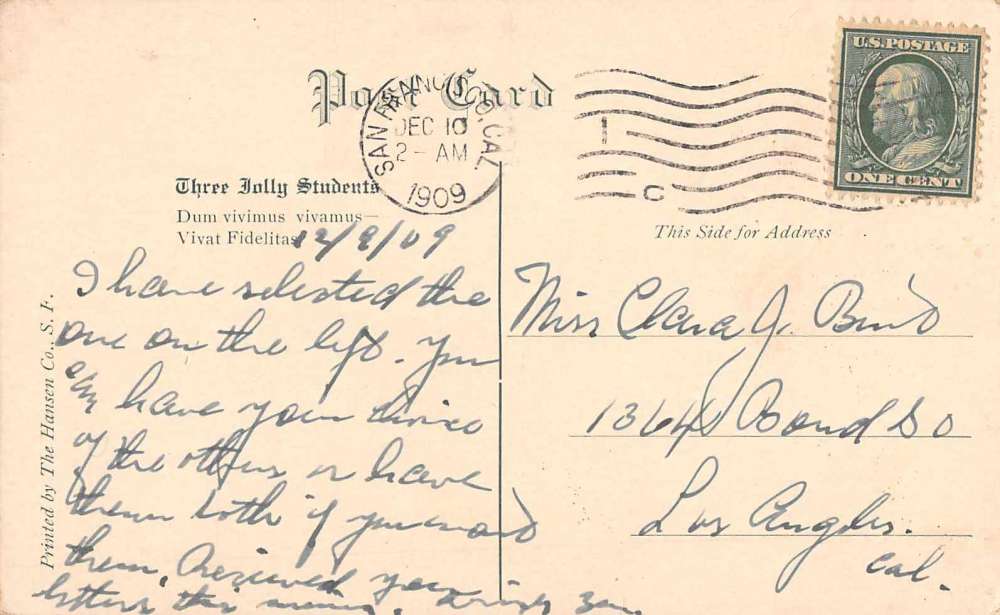 Post Card
SAN FRANCISCO, CAL.
DEC 10
2 - AM
1909
1
C
U.S. POSTAGE
ONE CENT
Three Jolly Students
Dum vivimus vivamus—
Vivat Fidelitas
This Side for Address
Printed by The Hansen Co., S. F.
12/9/09
I have selected the
one on the left. You
can have your choice
of the others or have
them both if you want
them, Received your
letters this
Miss Clara J.
1364 Bond St
Los Angeles.
Cal.